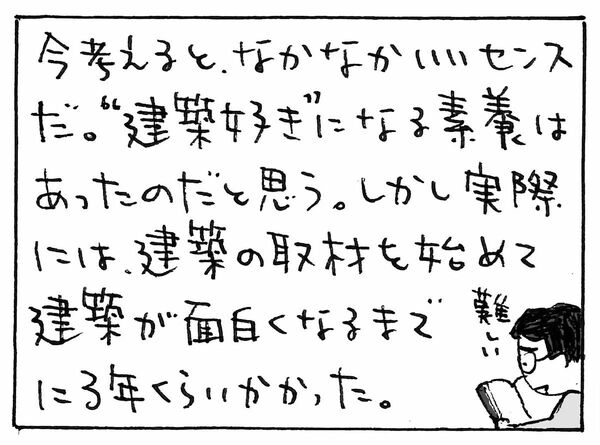 今考えると、なかなかいいセンス
だ。“建築好き”になる素養は
あったのだと思う。しかし実際
には、建築の取材を始めて
建築が面白くなるまで
に3年くらいかかった。
難しい